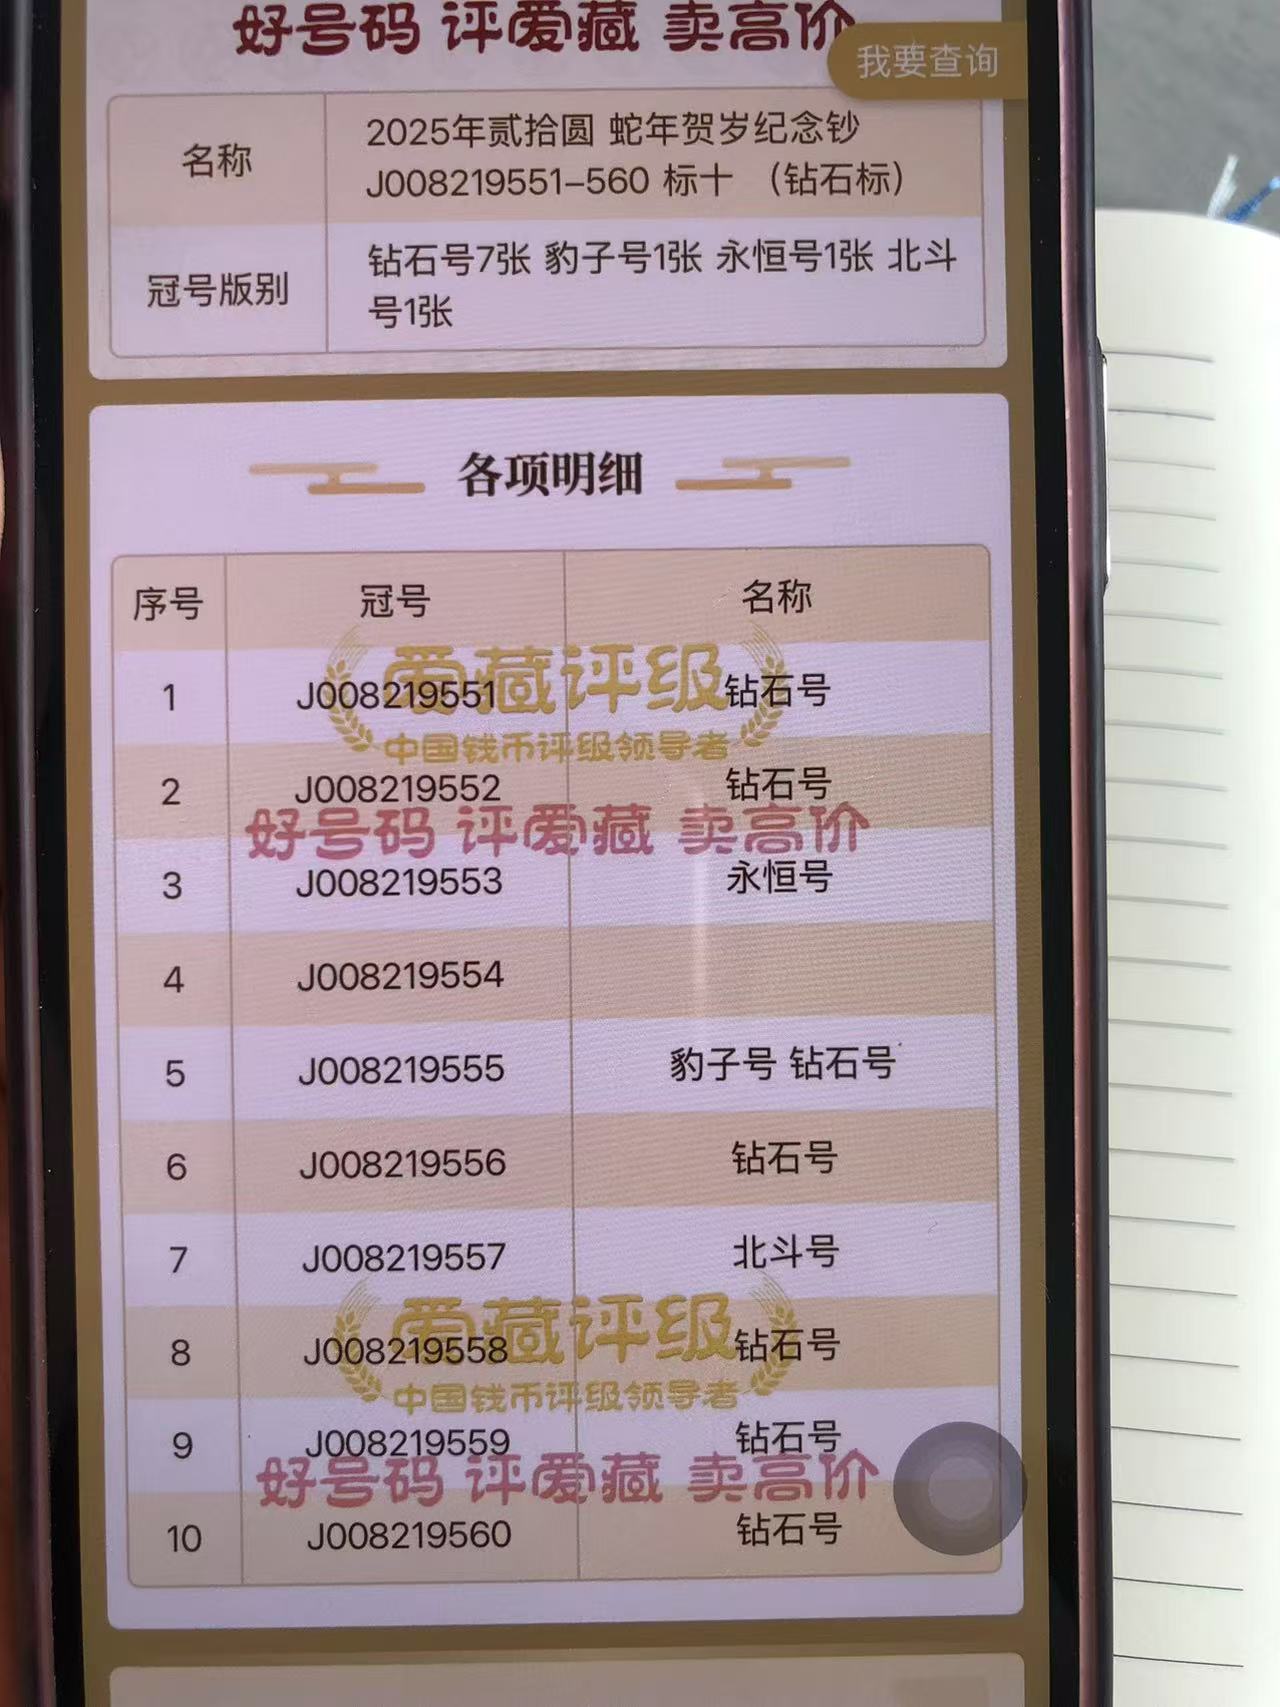 好号码 评爱藏 卖高价
我要查询
名称
2025年贰拾圆 蛇年贺岁纪念钞
J008219551-560 标十 （钻石标）
冠号版别
钻石号7张 豹子号1张 永恒号1张 北斗
号1张
各项明细
序号 冠号 名称
爱藏评级
1 J008219551 钻石号
中国钱币评级领导者
2 J008219552 钻石号
好号码 评爱藏 卖高价
3 J008219553 永恒号
4 J008219554
5 J008219555 豹子号 钻石号
6 J008219556 钻石号
7 J008219557 北斗号
爱藏评级
8 J008219558 钻石号
中国钱币评级领导者
9 J008219559 钻石号
好号码 评爱藏 卖高价
10 J008219560 钻石号